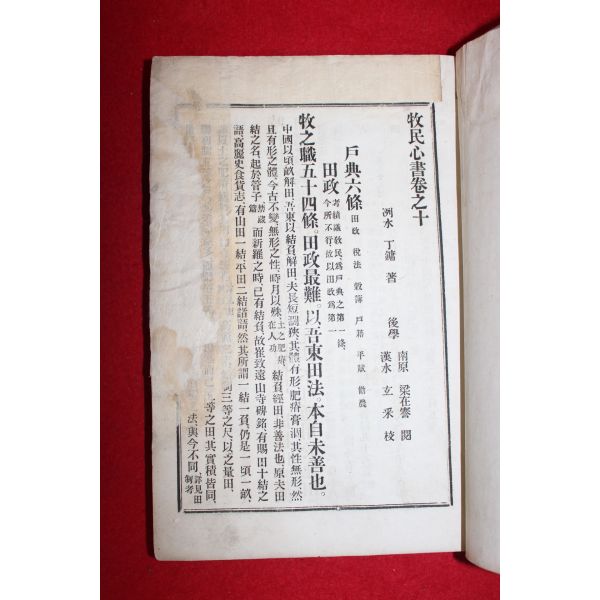 牧民心書卷之十
洌水 丁鏞 著
後學 南原 梁在謇 閱
漢水 玄采 校
戶典六條 田政 稅法 穀簿 戶籍 平賦 勸農
田政 考績議敎民爲戶典之第一條、今所不行故以田政爲第一
牧之職五十四條。田政最難。以、吾東田法。本自未善也。
中國以頃畝解田、吾東以結負解田、夫長短濶狹、其體有形、肥瘠膏涸、其性無形、然
且有形之體、今古不變、無形之性、時月以殊、土之肥瘠在人功 結負經田、非善法也、原夫田
結之名、起於管子禁藏篇 而新羅之時、已有結負、故崔致遠山寺碑銘、有賜田十結之
語、高麗史食貨志、有山田一結、平田二結諸語、然其所謂一結一負、仍是一頃一畝、
三等之尺、以之量田、
等之田、其實積皆同、
法、與今不同、詳見田制考